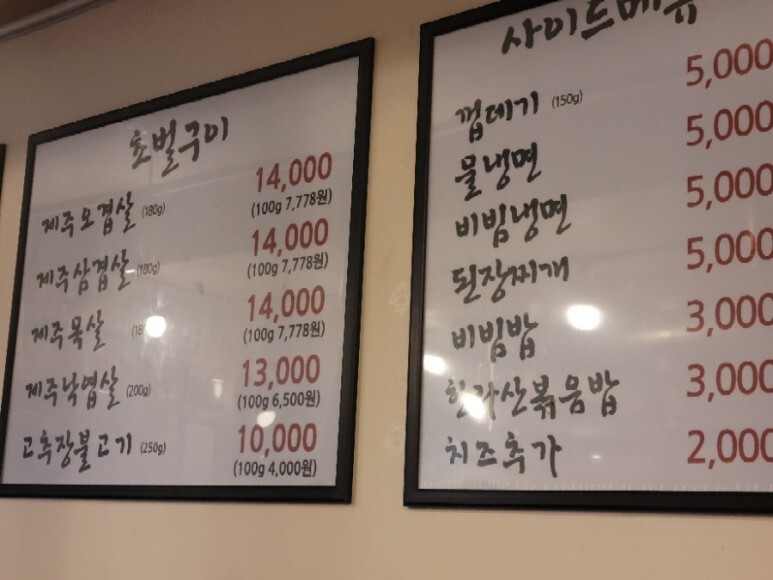 초벌구이
제주오겹살 (180g) 14,000
(100g 7,778원)
제주삼겹살 (180g) 14,000
(100g 7,778원)
제주목살 14,000
(100g 7,778원)
제주낙엽살 (200g) 13,000
(100g 6,500원)
고추장불고기 (250g) 10,000
(100g 4,000원)
사이드메뉴
껍데기 (150g) 5,000
물냉면 5,000
비빔냉면 5,000
된장찌개 5,000
비빔밥 3,000
한라산볶음밥 3,000
치즈추가 2,000